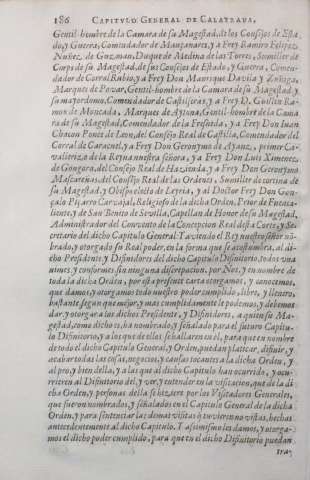 186 CAPITVLO GENERAL DE CALATRAVA,
Gentil-hombre de la Camara de su Magestad, de los Consejos de Esta-
do, y Guerra, Comendador de Manzanares, y a Frey Ramiro Felipez
Nuñez de Guzman, Duque de Medina de las Torres, Sumiller de
Corps de su Magestad, de sus Consejos de Estado, y Guerra, Comen-
dador de Corral Rubio, y a Frey Don Manrique Davila y Zuñiga,
Marques de Povar, Gentil-hombre de la Camara de su Magestad, y
su mayordomo, Comendador de Castilseras, y a Frey D. Guillen Ra-
mon de Moncada, Marques de Aytona, Gentil-hombre de la Cama
ra de su Magestad, Comendador de la Fresneda, y a Frey Don Iuan
Chacon Ponce de Leon, del Consejo Real de Castilla, Comendador del
Corral de Caracuel, y a Frey Don Geronymo de Ayanz, primer Ca-
vallerizo de la Reyna nuestra señora, y a Frey Don Luis Ximenez
de Gongora, del Consejo Real de Hazienda, y a Frey Don Geronymo
Mascareñas, del Consejo Real de las Ordenes, Sumiller de cortina de
su Magestad, y Obispo electo de Leyria, y al Doctor Frey Don Gon-
çalo Piçarro Carvajal, Religioso de la dicha Orden, Prior de Fuenca-
liente, y de San Benito de Sevilla, Capellan de Honor de su Magestad,
Administrador del Convento de la Concepcion Real desta Corte, y Se-
cretario del dicho Capitulo General. Y aviendo el Rey nuestro señor nõ-
brado, y otorgado su Real poder, en la forma que se acostumbra, al di-
cho Presidente, y Difinidores del dicho Capitulo Difinitorio, todos vna
nimes, y conformes, sin ninguna discrepacion, por Nos, y en nombre de
toda la dicha Orden, por esta presente carta otorgamos, y conocemos,
que damos, y otorgamos todo nuestro poder cumplido, libre, y llenero,
bastante, segun que mejor, y mas cumplidamente le podemos, y debemos
dar, y otorgar a los dichos Presidente, y Difinidores, a quien su Ma-
gestad, como dicho es, ha nombrado, y señalado para el futuro Capitu-
lo Difinitorio, y a los que de ellos se hallaren en el, para que en nombre
de todo el dicho Capitulo General, y Orden, puedan platicar, difinir, y
acabar todas las cosas, negocios, y causas tocantes a la dicha Orden, y
al pro, y bien della, y a las que al dicho Capitulo han ocurrido, y ocu-
rrieren al Difinitorio del, y ver, y entender en la visitacion, que de la di
cha Orden, y personas della se hiziere por los Visitadores Generales,
que fueron nombrados, y señalados en el Capitulo General de la dicha
Orden, y para sentenciar las demas visitas q̃ tuvieren no vistas, hechas
antecedentemente al dicho Capitulo. Y assimismo les damos, y otorga-
mos el dicho poder cumplido, para que en el dicho Difinitorio puedan